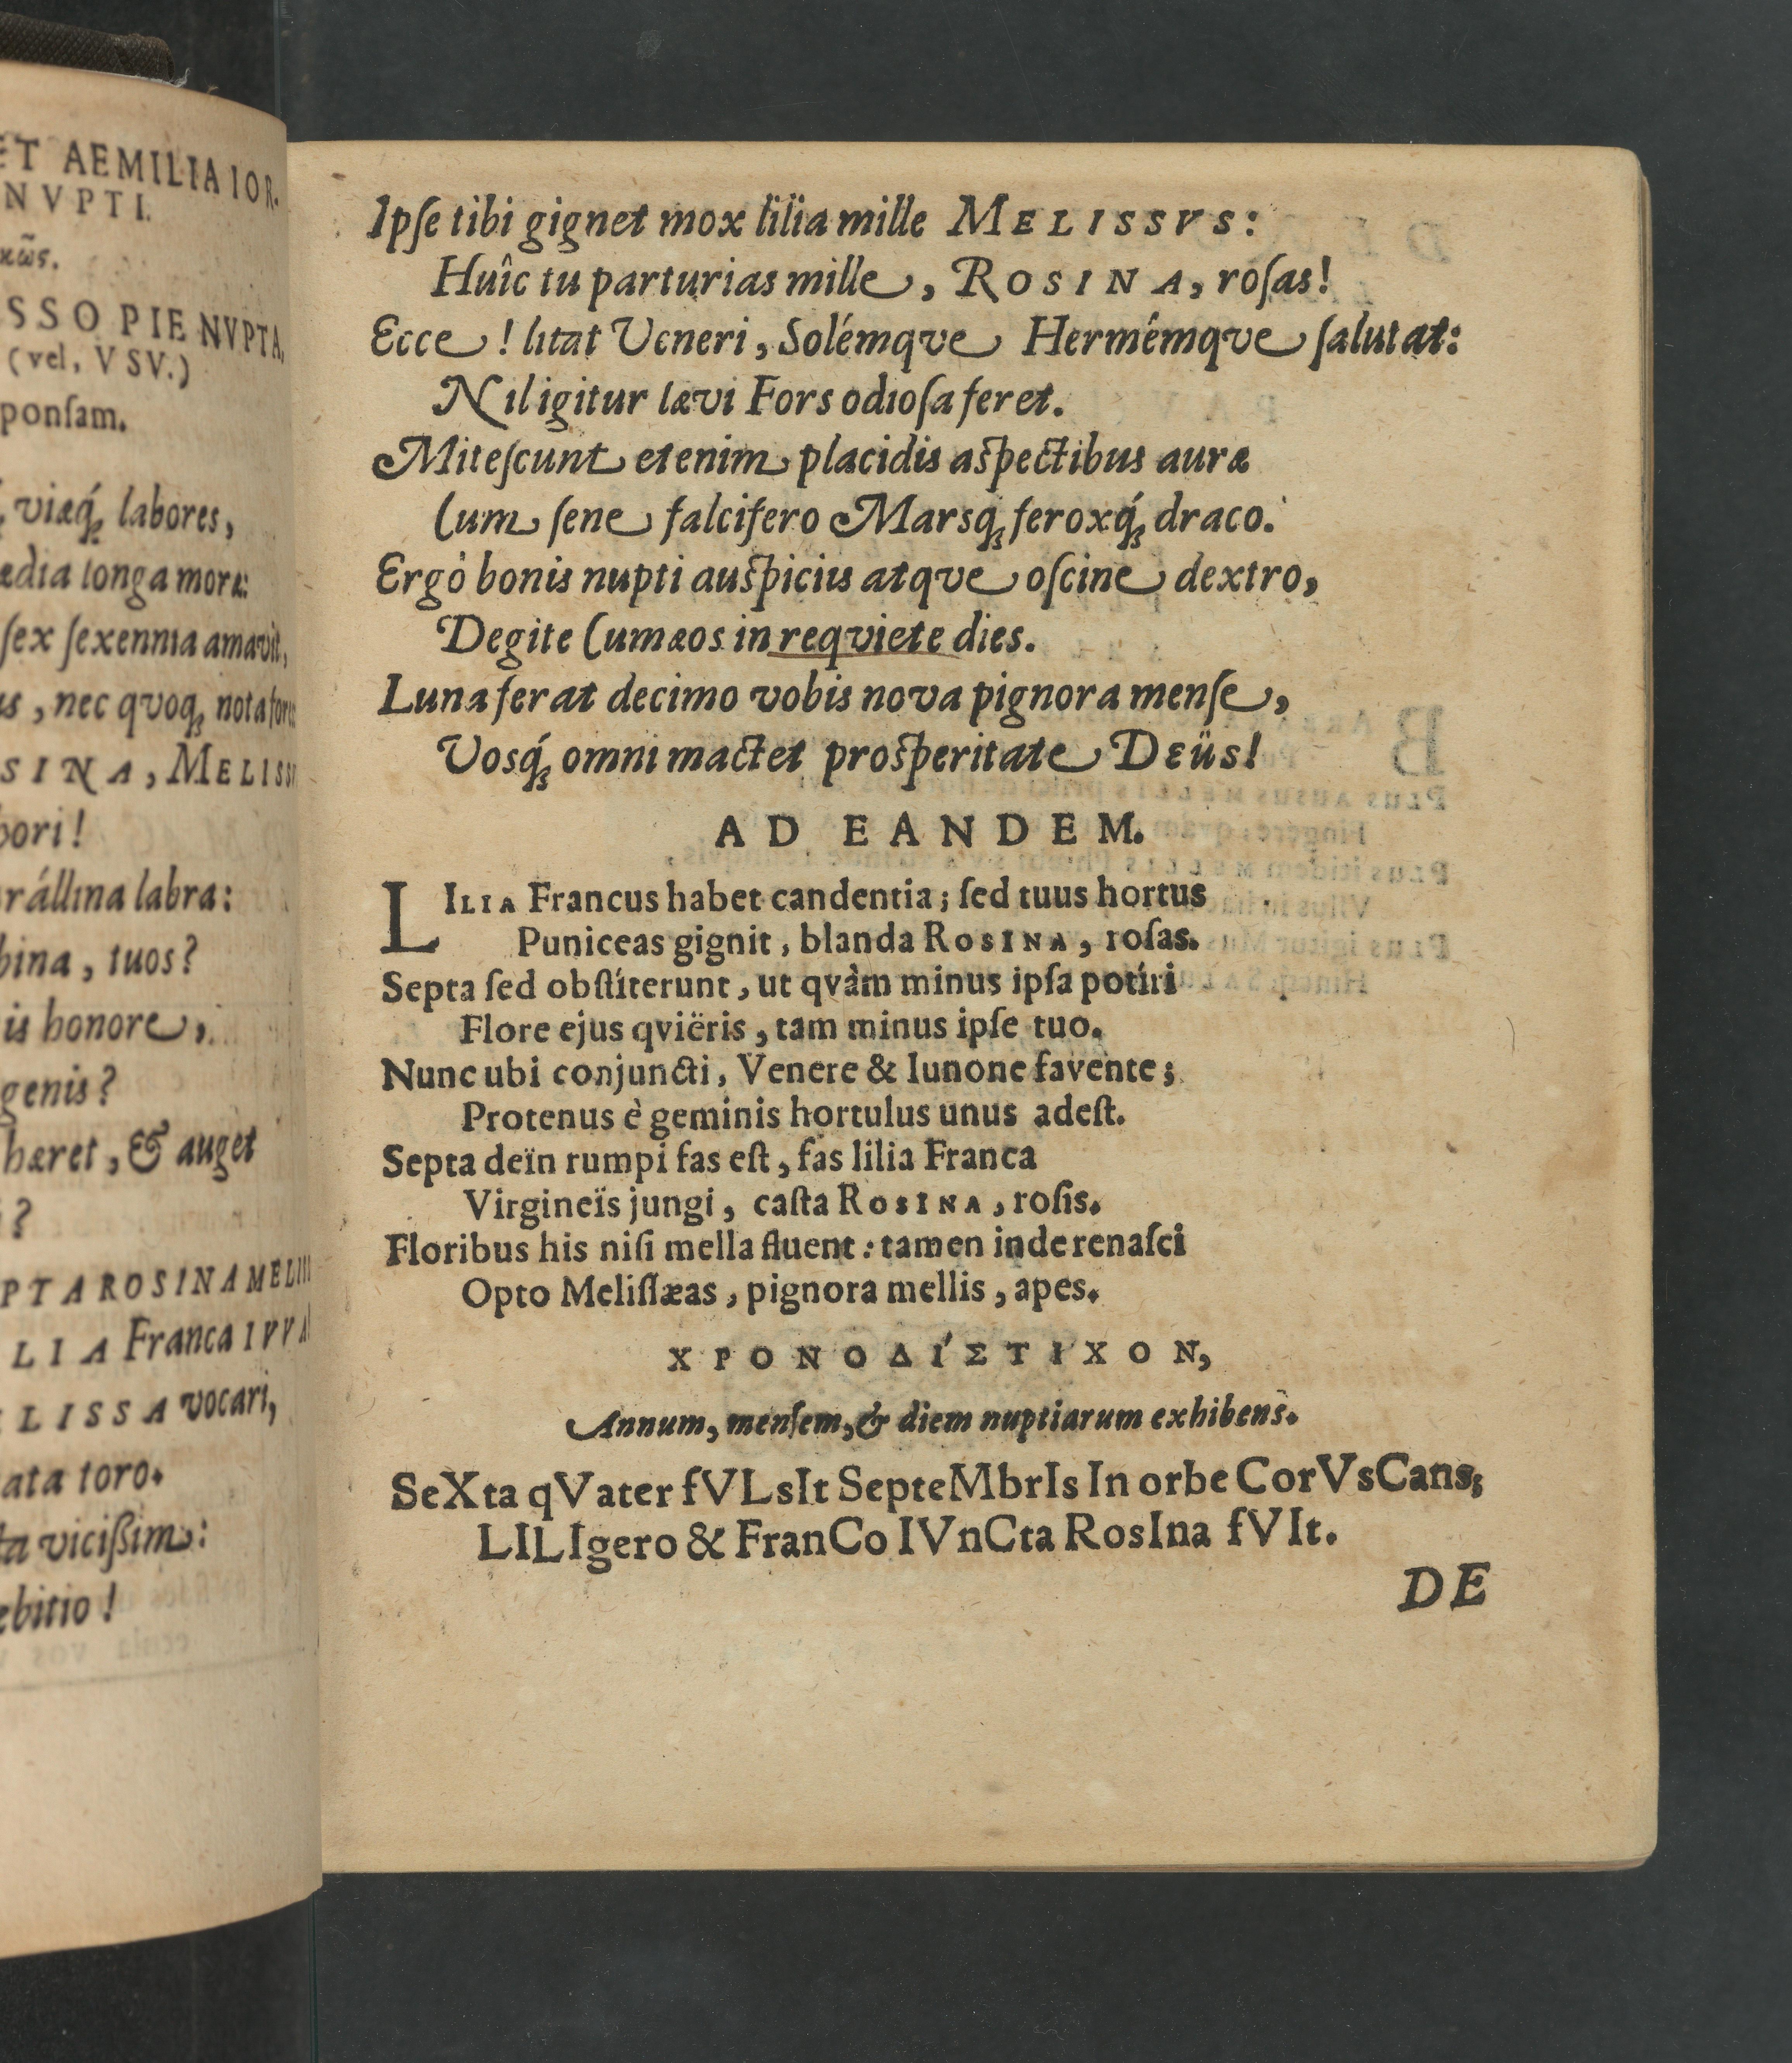 ET AEMILIA IOR.
NVPTI.
SSO PIE NVPTA,
(vel, VSV.)
ponſam.
viæq́; labores,
ædia longa moræ:
ſex ſexennia amavit,
us, nec qvoq; nota fores
SINA, MELISS
pori!
rállina labra:
bina, tuos?
is honore,
genis?
hæret, & auget
?
PTA ROSINA MELISS
LIA Franca IVVA
LISSA vocari,
ata toro.
ta viciſsim:
ebitio!
Ipſe tibi gignet mox lilia mille MELISSVS:
Huîc tu parturias mille, ROSINA, roſas!
Ecce! litat Veneri, Solémqve Hermêmqve ſalutat:
Nil igitur lævi Fors odioſa feret.
Miteſcunt etenim placidis aſpectibus auræ
Cum ſene falcifero Marsq́; feroxq́; draco.
Ergò bonis nupti auſpiciis atqve oſcine dextro,
Degite Cumæos in reqviete dies.
Luna ferat decimo vobis nova pignora menſe,
Vosq́; omni mactet proſperitate Deüs!
AD EANDEM.
LILIA Francus habet candentia; ſed tuus hortus
Puniceas gignit, blanda ROSINA, roſas.
Septa ſed obſtíterunt, ut qvàm minus ipſa potíri
Flore ejus qviëris, tam minus ipſe tuo.
Nunc ubi conjuncti, Venere & Iunone favente;
Protenus è geminis hortulus unus adeſt.
Septa deïn rumpi fas eſt, fas lilia Franca
Virgineïs jungi, caſta ROSINA, roſis.
Floribus his niſi mella fluent: tamen inde renaſci
Opto Meliſſæas, pignora mellis, apes.
ΧΡΟΝΟΔΊΣΤΙΧΟΝ,
Annum, menſem, & diem nuptiarum exhibens.
SeXta qVater fVLsIt SepteMbrIs In orbe CorVsCans;
LILIgero & FranCo IVnCta RosIna fVIt.
DE